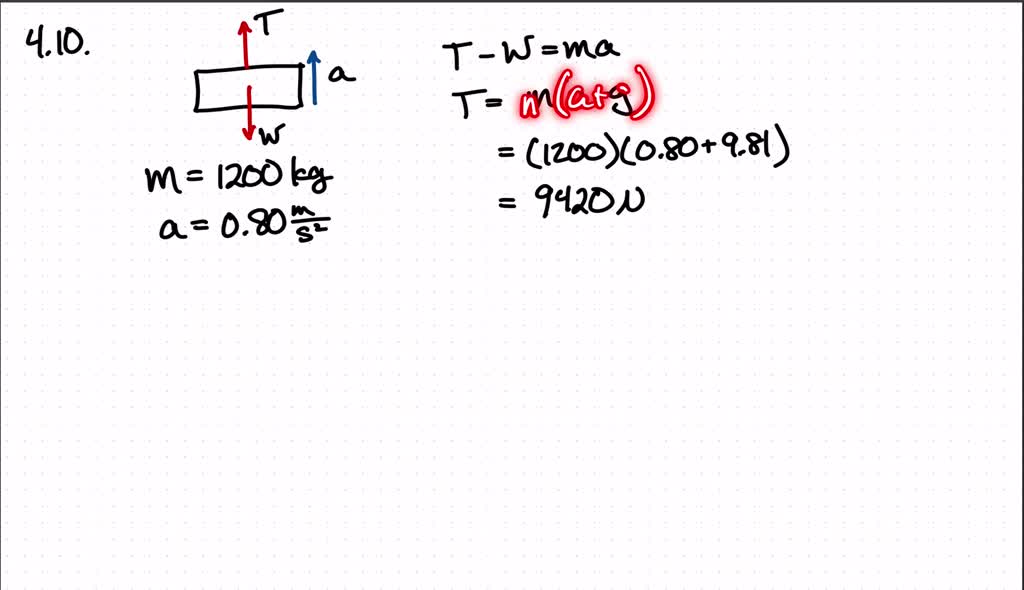 4.10.
T
a
W
m = 1200 kg
a = 0.80 m/s²
T - W = ma
T = m(a+g)
= (1200)(0.80 + 9.81)
= 9420 N